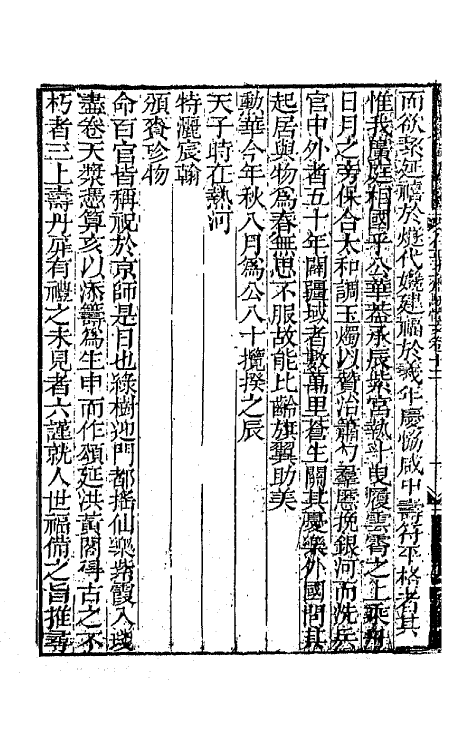 而欲聚延禧於燧代嬈建福於羲年慶暢咸中壽符平格者其
惟我廣庭相國乎公華蓋承辰紫宮執斗曳履雲霄之上乘舟
日月之旁保合太和調玉燭以贊治簫勺羣慝挽銀河而洗兵
官中外者五十年闢疆域者數萬里蒼生關其憂樂外國問其
起居與物爲春無思不服故能比齡旗翼助美
動華今年秋八月爲公八十攬揆之辰
天子時在熱河
特灑宸翰
頒賚珍物
命百官皆稱祝於京師是日也綠樹迎門都搖仙樂紫霞入琖
盡卷天漿憑算亥以添籌爲生申而作頌延洪黃閣尋古之不
朽者三上壽丹有禮之未見者六謹就人世福備之旨推尋